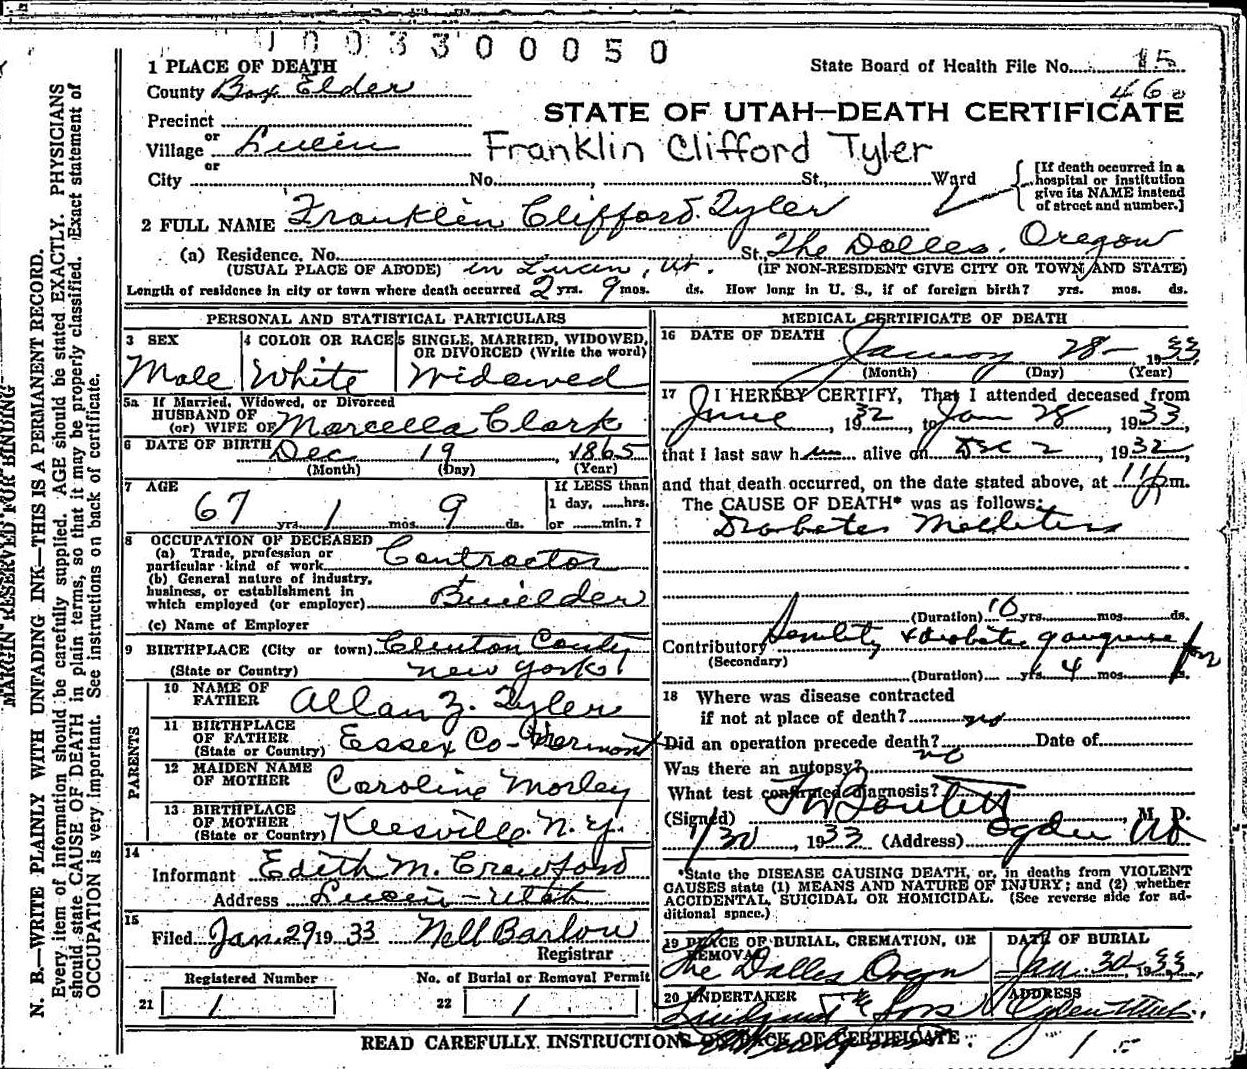 J 0 0 3 3 0 0 0 5 0
1 PLACE OF DEATH
State Board of Health File No. 15
County Box Elder
460
STATE OF UTAH—DEATH CERTIFICATE
Precinct
or
Village Lucin
Franklin Clifford Tyler
or
City No. , St., Ward
[If death occurred in a hospital or institution give its NAME instead of street and number.]
2 FULL NAME Franklin Clifford Tyler
(a) Residence. No. St. The Dalles, Oregon
(USUAL PLACE OF ABODE) in Lucin, Ut. (IF NON-RESIDENT GIVE CITY OR TOWN AND STATE)
Length of residence in city or town where death occurred 2 yrs. 9 mos. ds. How long in U. S., if of foreign birth? yrs. mos. ds.
PERSONAL AND STATISTICAL PARTICULARS
3 SEX
Male
4 COLOR OR RACE
White
5 SINGLE, MARRIED, WIDOWED,
OR DIVORCED (Write the word)
Widowed
5a If Married, Widowed, or Divorced
HUSBAND OF
(or) WIFE OF Marcella Clark
6 DATE OF BIRTH Dec 19, 1865
(Month) (Day) (Year)
7 AGE
67 yrs. 1 mos. 9 ds.
If LESS than
1 day, ......hrs.
or ......min.?
8 OCCUPATION OF DECEASED
(a) Trade, profession or
particular kind of work Contractor
(b) General nature of industry,
business, or establishment in
which employed (or employer) Builder
(c) Name of Employer
9 BIRTHPLACE (City or town) Clinton County
(State or Country) New York
PARENTS
10 NAME OF
FATHER Allan Z. Tyler
11 BIRTHPLACE
OF FATHER
(State or Country) Essex Co - Vermont
12 MAIDEN NAME
OF MOTHER Caroline Morley
13 BIRTHPLACE
OF MOTHER
(State or Country) Keesville. N.Y.
14
Informant Edith M. Crawford
Address Lucin - Utah
15
Filed Jan. 29 1933 Nell Barlow
Registrar
Registered Number
21 1
No. of Burial or Removal Permit
22 1
MEDICAL CERTIFICATE OF DEATH
16 DATE OF DEATH
January 28 - 1933
(Month) (Day) (Year)
17 I HEREBY CERTIFY, That I attended deceased from
June, 1932, to Jan 28, 1933
that I last saw him alive on Dec 2, 1932,
and that death occurred, on the date stated above, at 11 p.m.
The CAUSE OF DEATH* was as follows:
Diabetes Mellitus
(Duration) 10 yrs. mos. ds.
Contributory Senility & diabetic gangrene
(Secondary)
(Duration) yrs. 4 mos.
18 Where was disease contracted
if not at place of death? no
Did an operation precede death? no Date of
Was there an autopsy?
What test confirmed diagnosis?
(Signed) , M. D.
1/30, 1933 (Address) Ogden Ut
*State the DISEASE CAUSING DEATH, or, in deaths from VIOLENT
CAUSES state (1) MEANS AND NATURE OF INJURY; and (2) whether
ACCIDENTAL, SUICIDAL OR HOMICIDAL. (See reverse side for ad-
ditional space.)
19 PLACE OF BURIAL, CREMATION, OR
REMOVAL
The Dalles Oregon
DATE OF BURIAL
Jan. 30, 1933
20 UNDERTAKER
Lindquist & Sons
ADDRESS
Ogden Utah.
READ CAREFULLY INSTRUCTIONS ON BACK OF CERTIFICATE
MARGIN RESERVED FOR BINDING
N. B.—WRITE PLAINLY WITH UNFADING INK—THIS IS A PERMANENT RECORD.
Every item of information should be carefully supplied. AGE should be stated EXACTLY. PHYSICIANS
should state CAUSE OF DEATH in plain terms, so that it may be properly classified. Exact statement of
OCCUPATION is very important. See instructions on back of certificate.